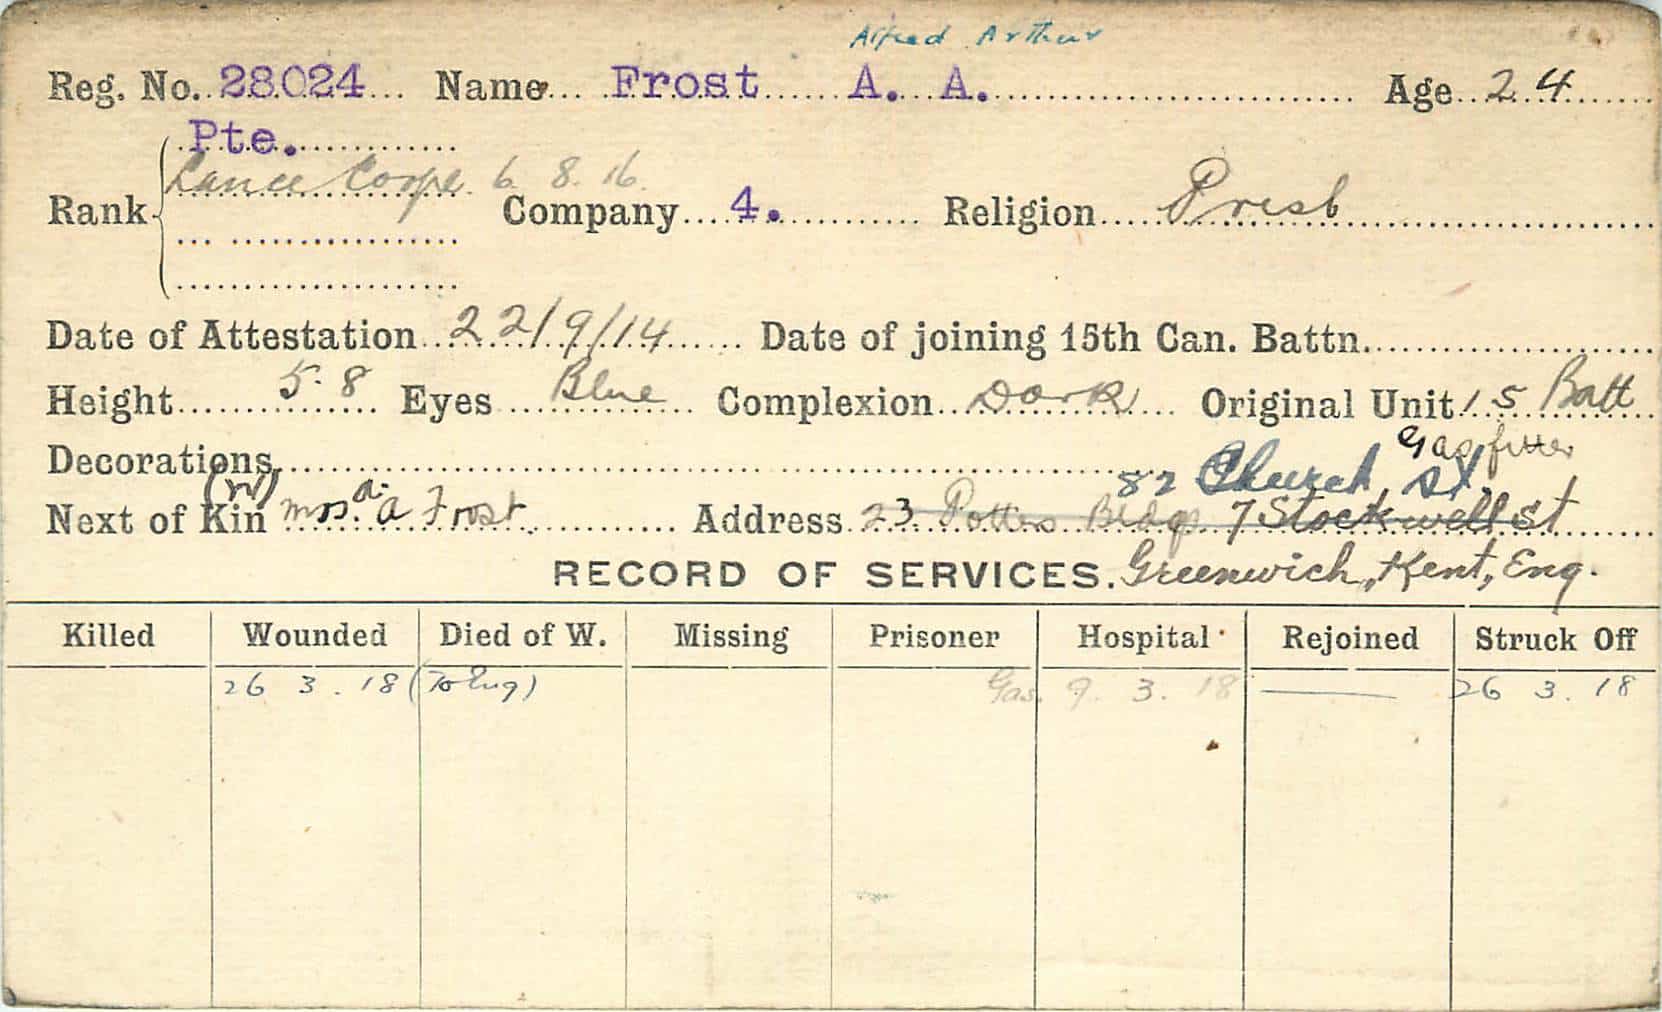 Alfred Arthur
Reg. No. 28024 Name Frost A. A. Age 24
Pte.
Lance Corpl. 6 8. 16.
Rank Company 4. Religion Presb
Date of Attestation 22/9/14 Date of joining 15th Can. Battn.
Height 5.8 Eyes Blue Complexion Dark Original Unit 15 Batt
Gasfitter
Decorations
82 Church St.
(W) a.
Next of Kin Mrs. A Frost Address 23 Potters Bldgs 7 Stockwell St
RECORD OF SERVICES. Greenwich, Kent, Eng.
Killed Wounded Died of W. Missing Prisoner Hospital Rejoined Struck Off
26 3. 18 (To Eng) Gas. 9. 3. 18 26 3. 18